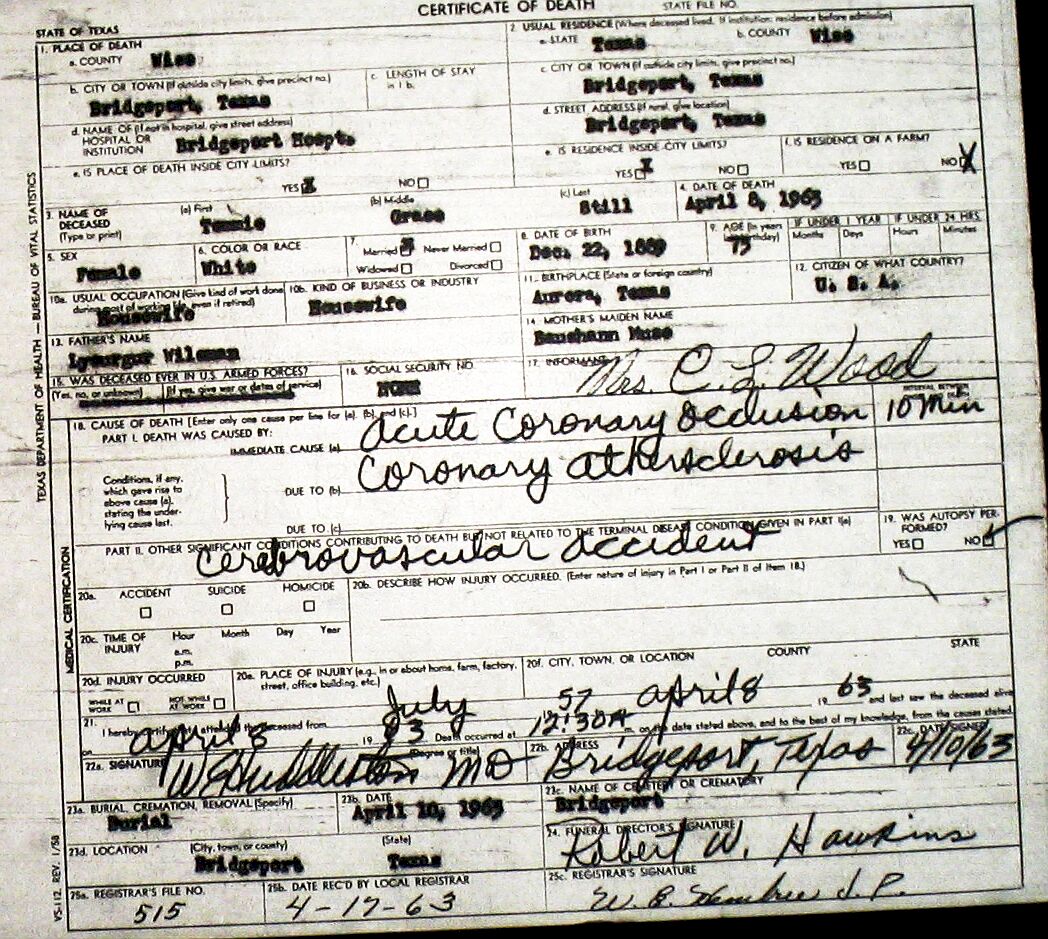 CERTIFICATE OF DEATH
STATE OF TEXAS STATE FILE NO.
1. PLACE OF DEATH
a. COUNTY Wise
2. USUAL RESIDENCE (Where deceased lived. If institution: residence before admission)
a. STATE Texas b. COUNTY Wise
b. CITY OR TOWN (If outside city limits, give precinct no.) c. LENGTH OF STAY in 1 b.
Bridgeport, Texas
c. CITY OR TOWN (If outside city limits, give precinct no.)
Bridgeport, Texas
d. NAME OF (If not in hospital, give street address)
HOSPITAL OR
INSTITUTION Bridgeport Hospt.
d. STREET ADDRESS (If rural, give location)
Bridgeport, Texas
e. IS PLACE OF DEATH INSIDE CITY LIMITS?
YES X NO
e. IS RESIDENCE INSIDE CITY LIMITS?
YES X NO
f. IS RESIDENCE ON A FARM?
YES NO X
3. NAME OF DECEASED (Type or print)
(a) First (b) Middle (c) Last
Grace Still
4. DATE OF DEATH
April 8, 1963
5. SEX
Female
6. COLOR OR RACE
White
7.
Married X Never Married
Widowed Divorced
8. DATE OF BIRTH
Dec. 22, 1889
9. AGE (In years last birthday)
73
IF UNDER 1 YEAR IF UNDER 24 HRS.
Months Days Hours Minutes
10a. USUAL OCCUPATION (Give kind of work done during most of working life, even if retired)
Housewife
10b. KIND OF BUSINESS OR INDUSTRY
Housewife
11. BIRTHPLACE (State or foreign country)
Aurora, Texas
12. CITIZEN OF WHAT COUNTRY?
U. S. A.
13. FATHER'S NAME
14. MOTHER'S MAIDEN NAME
Muse
15. WAS DECEASED EVER IN U.S. ARMED FORCES?
(Yes, no, or unknown) (If yes, give war or dates of service)
16. SOCIAL SECURITY NO.
NONE
17. INFORMANT
Mrs. C. L. Wood
18. CAUSE OF DEATH [Enter only one cause per line for (a), (b), and (c).]
INTERVAL BETWEEN
PART I. DEATH WAS CAUSED BY:
IMMEDIATE CAUSE (a) Acute Coronary Occlusion 10 Min
Conditions, if any, which gave rise to above cause (a), stating the underlying cause last.
DUE TO (b) Coronary Atherosclerosis
DUE TO (c)
PART II. OTHER SIGNIFICANT CONDITIONS CONTRIBUTING TO DEATH BUT NOT RELATED TO THE TERMINAL DISEASE CONDITION GIVEN IN PART I(a)
Cerebrovascular Accident
19. WAS AUTOPSY PERFORMED?
YES NO
20a. ACCIDENT SUICIDE HOMICIDE
20b. DESCRIBE HOW INJURY OCCURRED. (Enter nature of injury in Part I or Part II of Item 18.)
20c. TIME OF INJURY Hour Month Day Year
a.m.
p.m.
20d. INJURY OCCURRED
WHILE AT WORK NOT WHILE AT WORK
20e. PLACE OF INJURY (e.g., in or about home, farm, factory, street, office building, etc.)
20f. CITY, TOWN, OR LOCATION COUNTY STATE
21. I hereby certify that I attended the deceased from July 19 57 April 8 19 63 and last saw the deceased alive
on April 8 19 63 Death occurred at 12:30 A m. on the date stated above, and to the best of my knowledge, from the causes stated.
22a. SIGNATURE (Degree or title)
W Huddleston MD
22b. ADDRESS
Bridgeport, Texas
22c. DATE SIGNED
4/10/63
23a. BURIAL, CREMATION, REMOVAL (Specify)
Burial
23b. DATE
April 10, 1963
23c. NAME OF CEMETERY OR CREMATORY
Bridgeport
23d. LOCATION (City, town, or county) (State)
Bridgeport Texas
24. FUNERAL DIRECTOR'S SIGNATURE
Robert W. Hawkins
25a. REGISTRAR'S FILE NO.
515
25b. DATE REC'D BY LOCAL REGISTRAR
4-17-63
25c. REGISTRAR'S SIGNATURE
J. P.
TEXAS DEPARTMENT OF HEALTH — BUREAU OF VITAL STATISTICS
MEDICAL CERTIFICATION
VS-112 REV. 1/58